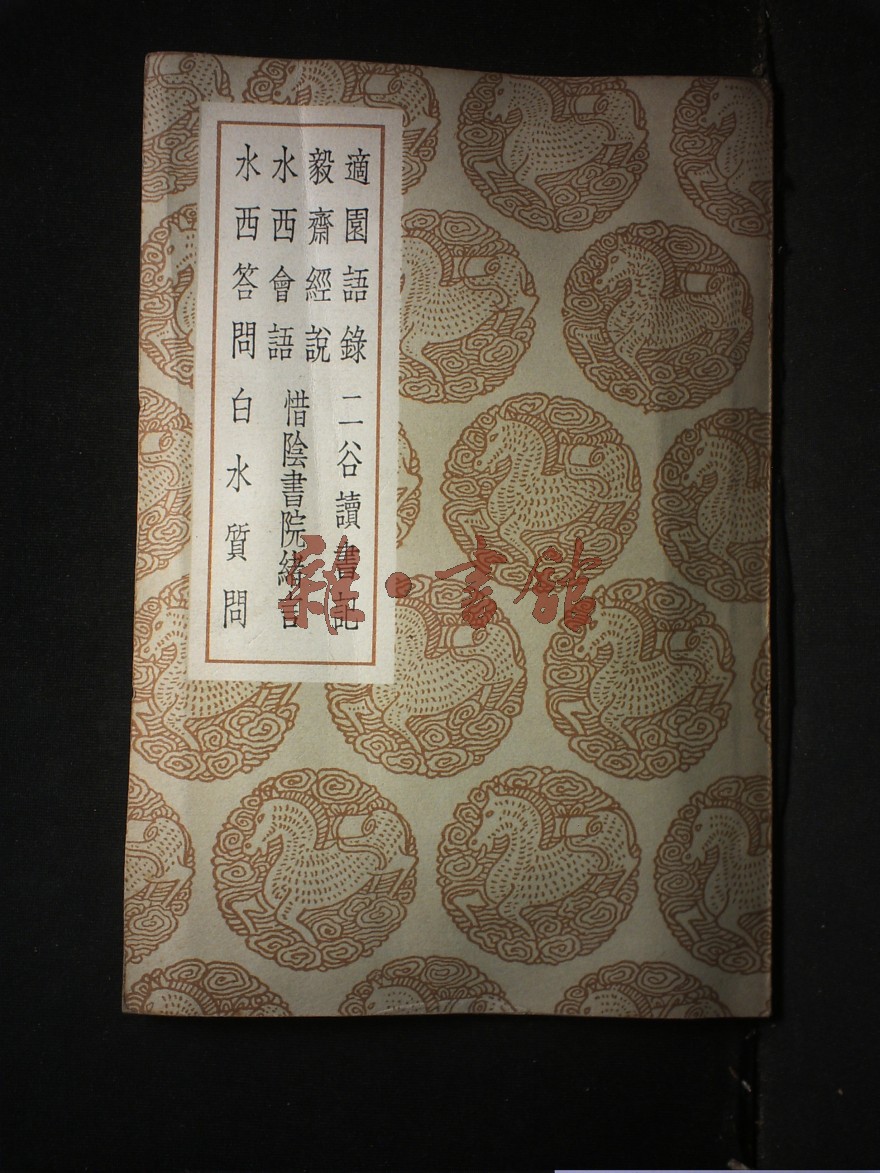 適園語錄 二谷讀書記
毅齋經說
水西會語 惜陰書院緒言
水西答問 白水質問
雜·書館